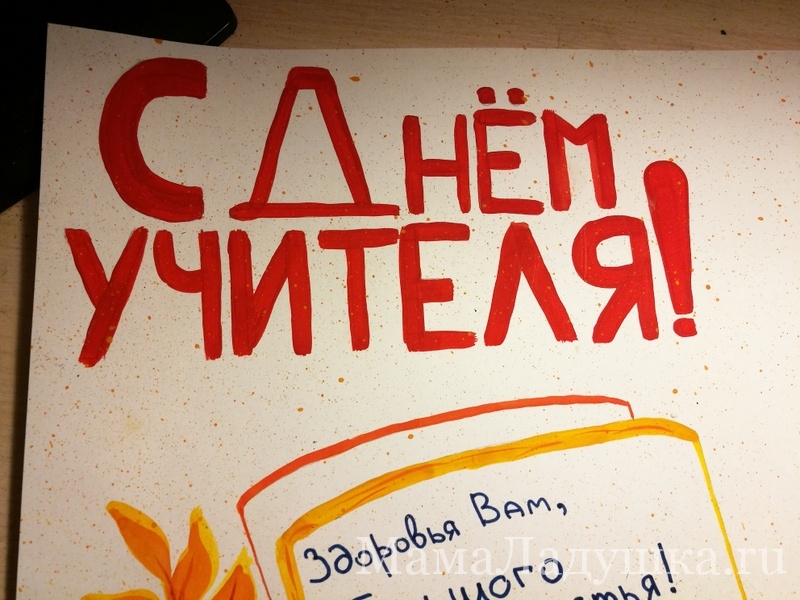 С ДНЁМ
УЧИТЕЛЯ!
Здоровья Вам,
МамаЛадушка.ru